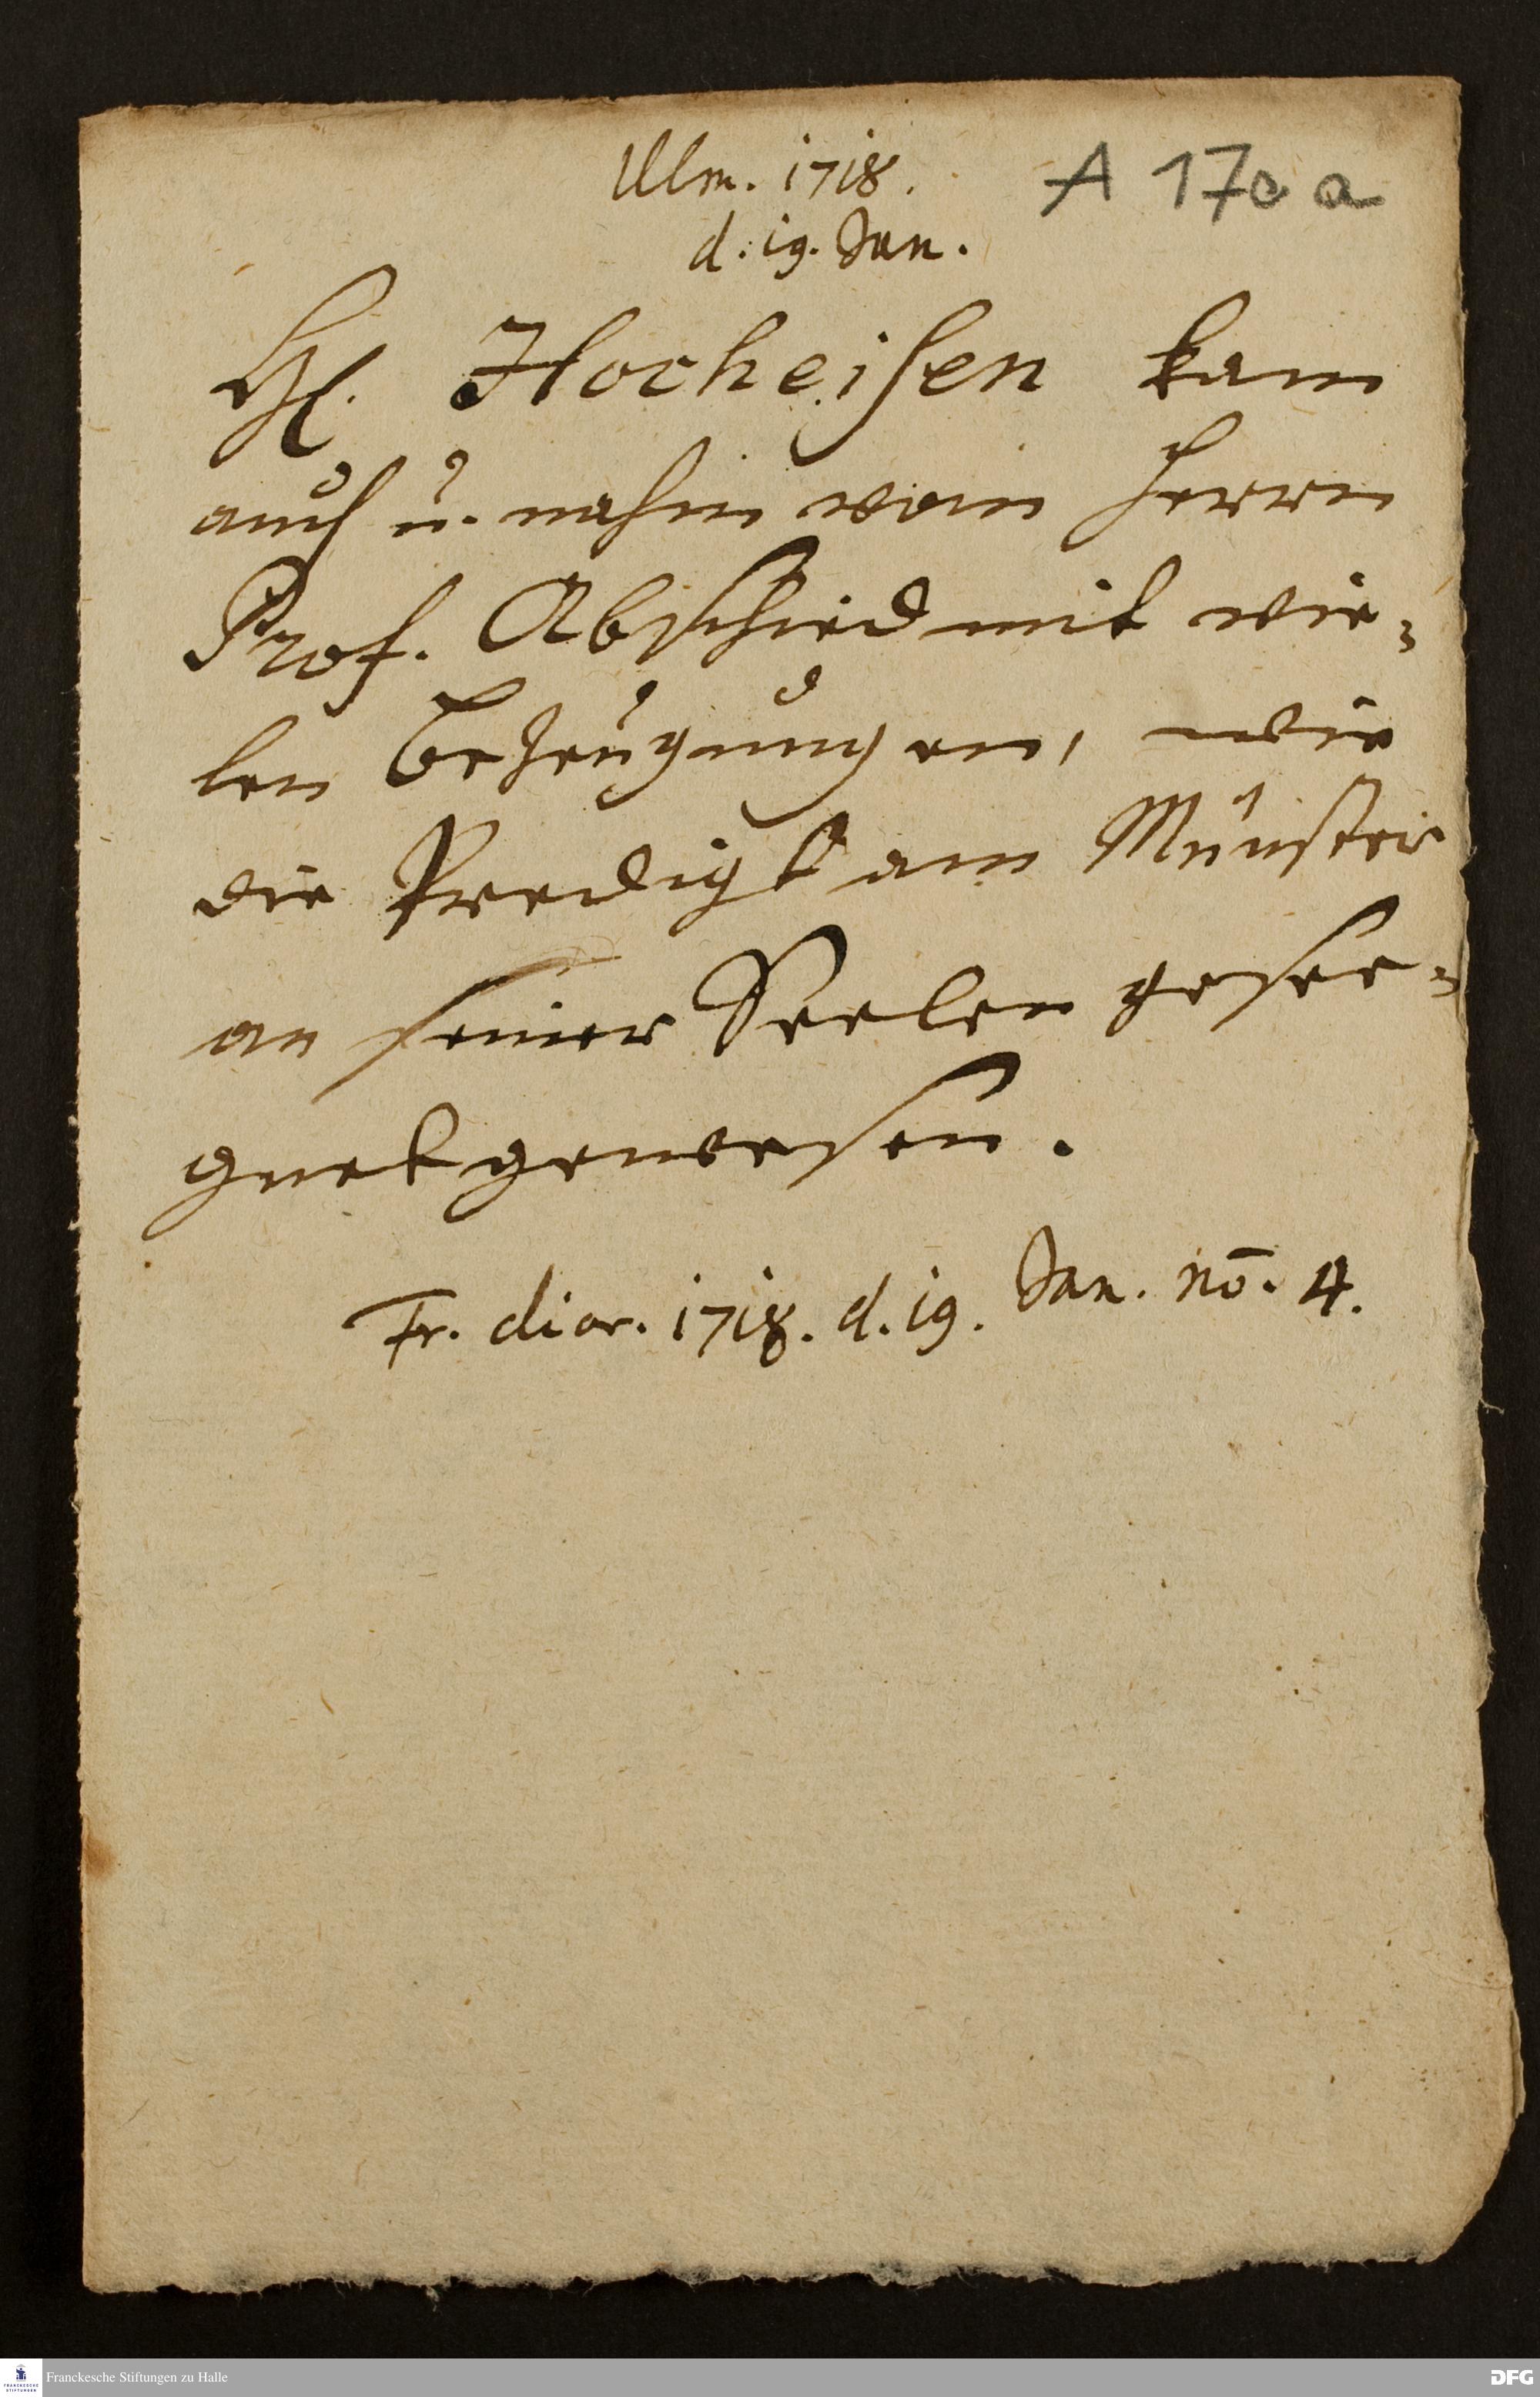 Ulm. 1718.
A 170 a
d. 19. Jan.
H. Hocheisen kam
auch u. nahm vom Herrn
Prof. Abschied mit vie-
len Bezeugungen, wie
die Predigt am Münster
an seiner Seelen gesee-
gnet gewesen.
Fr. diar. 1718. d. 19. Jan. no. 4.
FRANCKESCHE STIFTUNGEN
Franckesche Stiftungen zu Halle
DFG